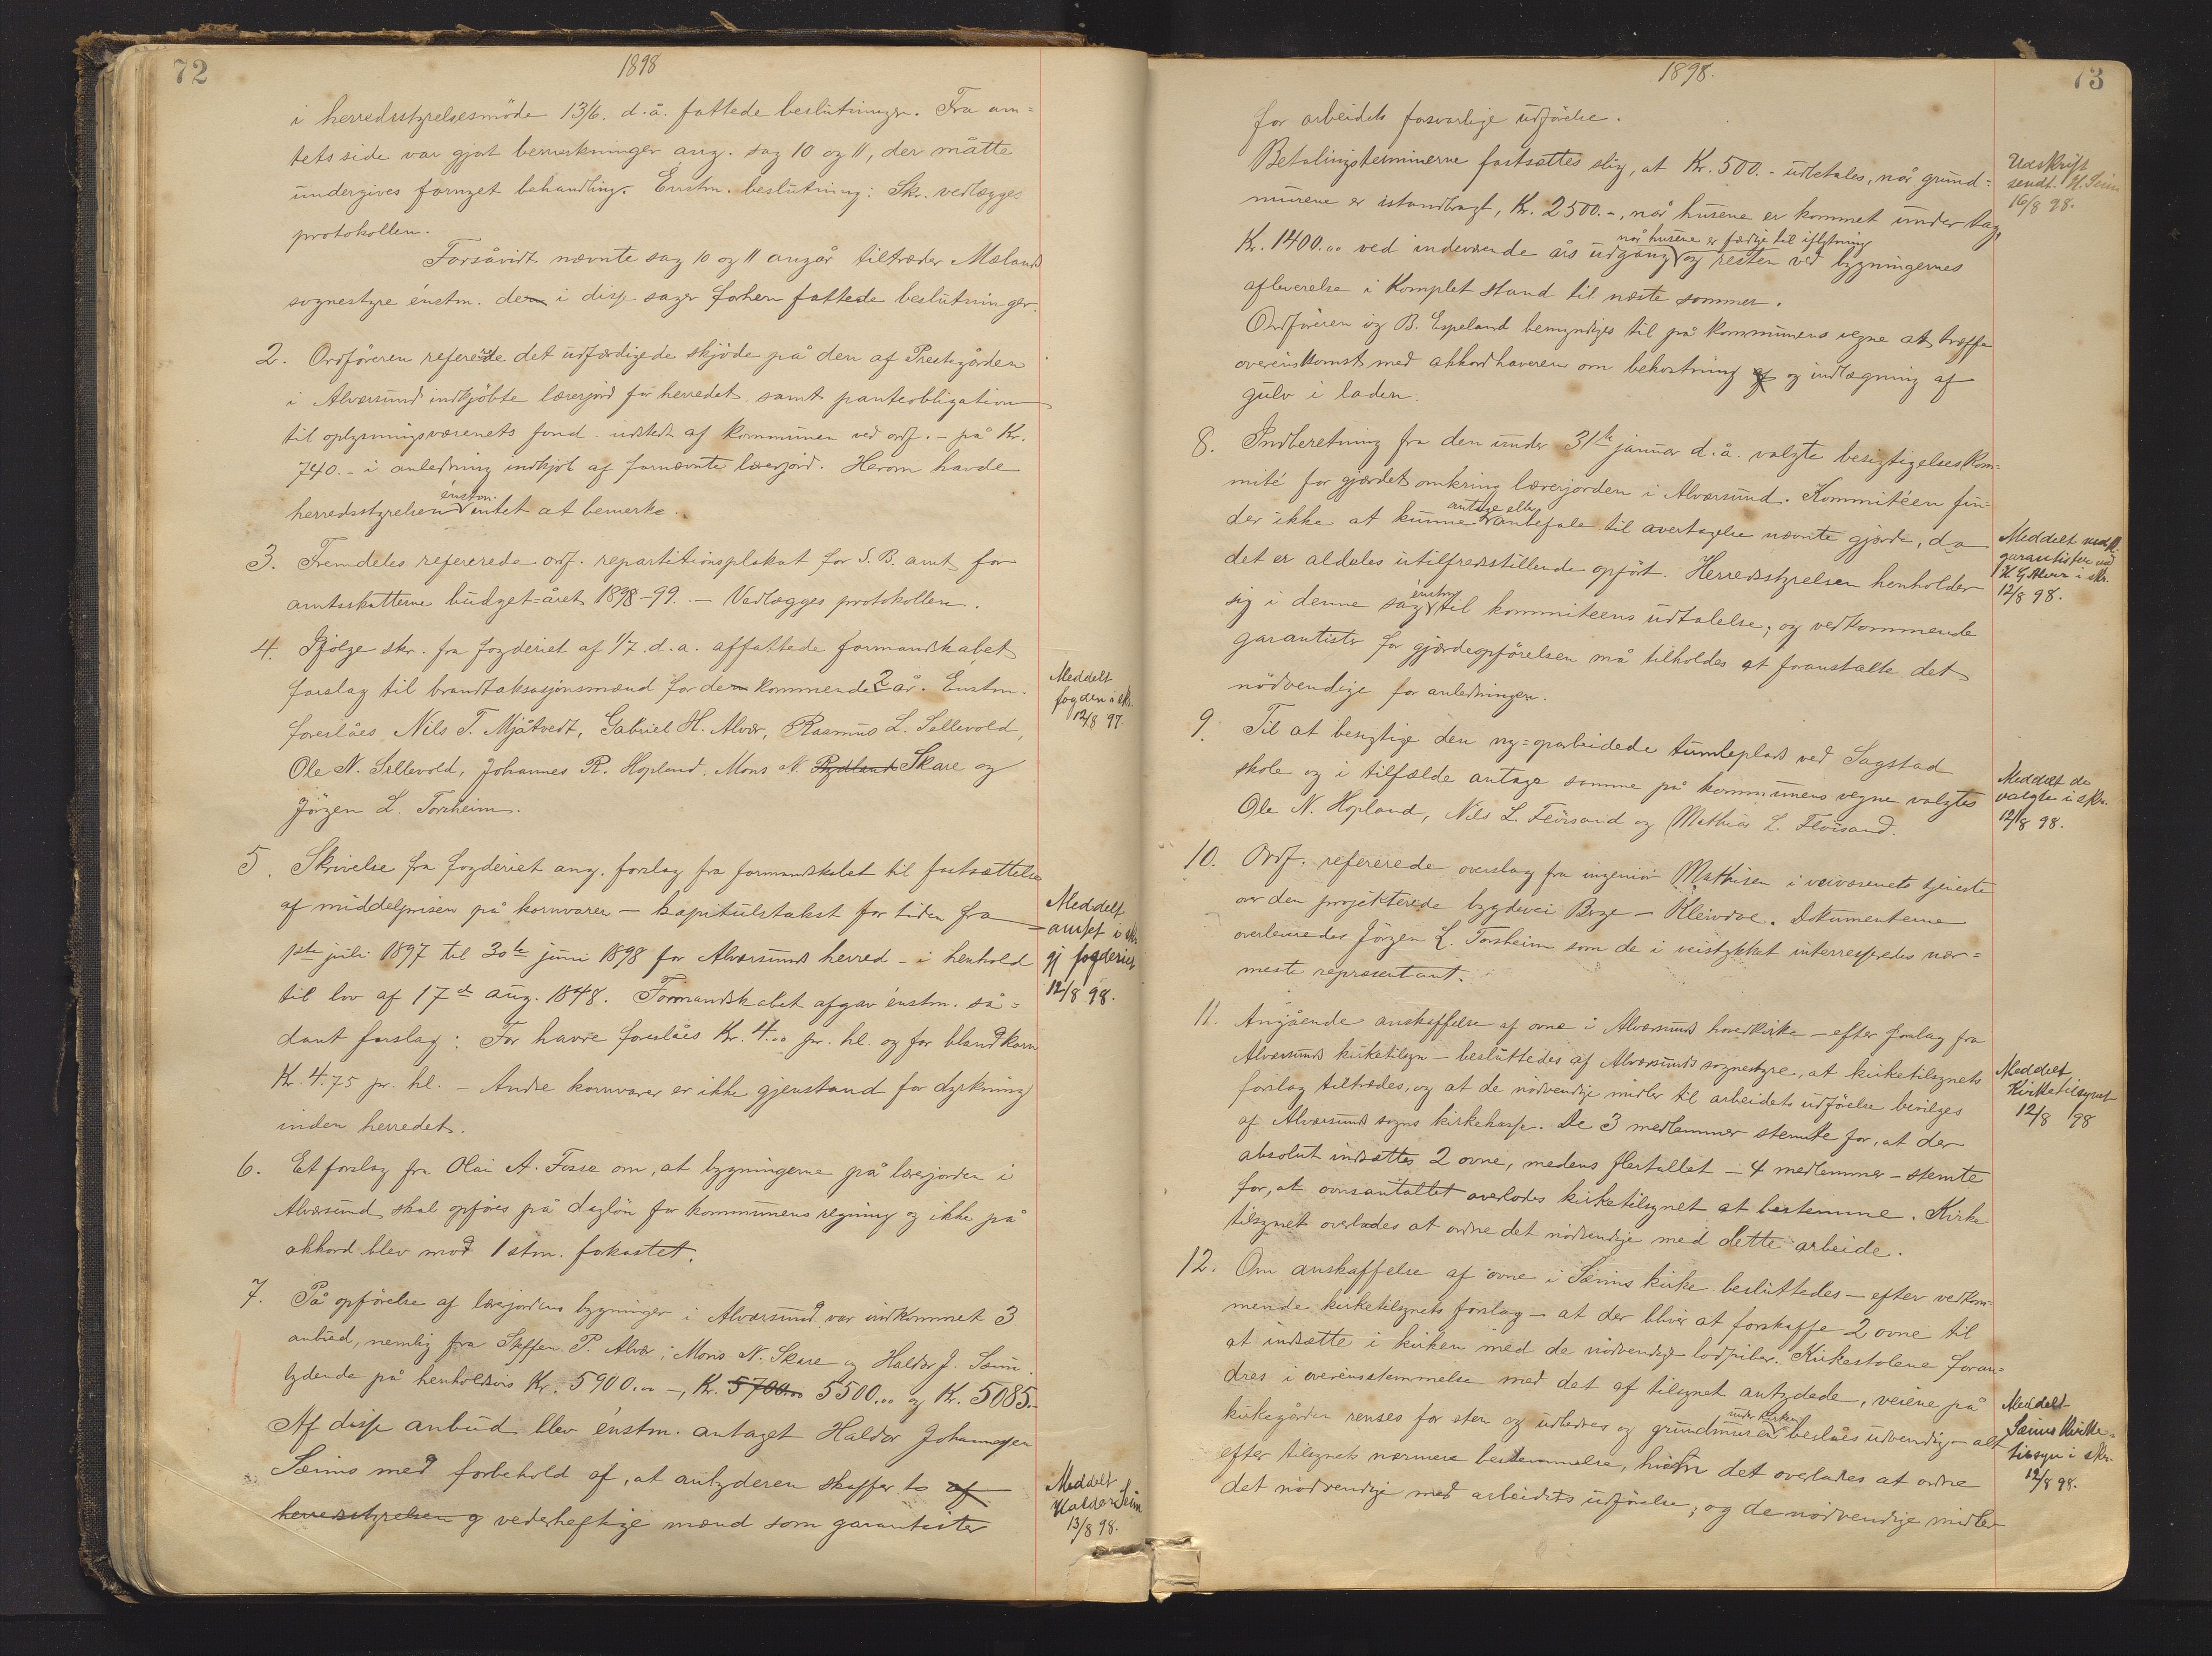 72
1898
i herredsstyrelsesmöde 13/6. d.å. fattede beslutninger. Fra am=
tets side var gjort bemerkninger ang. sag 10 og 11, der måtte
undergives fornyet behandling. Enstm. beslutning: Skr. vedlægges
protokollen.
Forsåvidt nævnte sag 10 og 11 angår tiltræder Mælands
sognestyre énstm. de i disse sager forhen fattede beslutninger.
2. Ordföreren refererede det udfærdigede skjöde på den af Prestegården
i Alversund indkjöbte lærerjord for herredet samt panteobligation
til oplysningsvæsenets fond udstedt af kommunen ved ordf. – på Kr.
740.– i anledning indkjöb af fornævnte lærerjord. Herom havde
énstm.
herredsstyrelsen intet at bemerke.
3. Fremdeles refererede ordf. repartitionsplakat for S. B. amt for
amtsskatterne budget-året 1898–99. – Vedlægges protokollen.
4. Ifölge skr. fra fogderiet af 1/7. d.a. affattede formandskabet
forslag til brandtaksasjonsmænd for de kommende 2 år. Enstm.
foreslåes Nils T. Mjåtvedt, Gabriel H. Alver, Rasmus L. Sellevold,
Ole N. Sellevold, Johannes R. Hopland, Mons N. Rydland Skare og
Jörgen L. Torsheim.
Meddelt
fogden i skr.
12/8 97.
5. Skrivelse fra fogderiet ang. forslag fra formandskabet til fastsættelse
af middelprisen på kornvarer – kapitulstakst for tiden fra
1ste juli 1897 til 30te juni 1898 for Alversunds herred – i henhold
til lov af 17de aug. 1848. Formandskabet afgav énstm. så=
dant forslag: For havre foreslåes Kr. 4.00 pr. hl. og for blandkorn
Kr. 4.75 pr. hl. – Andre kornvarer er ikke gjenstand for dyrkning
inden herredet.
Meddelt
amtet i skr
gj fogderiet
12/8 98.
6. Et forslag fra Olai A. Fosse om, at bygningerne på lærerjorden i
Alversund skal opföres på daglön for kommunens regning og ikke på
akkord blev mod 1 stm. forkastet.
7. På opförelse af lærerjordens bygninger i Alversund var indkommet 3
anbud, nemlig fra Steffen P. Alver, Mons N. Skare og Haldor J. Sæim
lydende på henholdsvis Kr. 5900.00 –, Kr. 5700.00 5500.00 og Kr. 5085.–
Af disse anbud blev énstm. antaget Haldor Johannessen
Sæims med forbehold af, at anbyderen skaffer to af
herredsstyrelsen g vederheftige mænd som garantister
Meddelt
Haldor Seim
13/8 98.
1898.
73
for arbeidets forsvarlige udförelse.
Betalingsterminerne fastsættes slig, at Kr. 500.– udbetales, når grund=
murene er istandbragt, Kr. 2500.–, når husene er kommet under tag,
når husene er færdige til iflytning
Kr. 1400.00 ved indeværende års udgang og resten ved bygningernes
afleverelse i komplet stand til næste sommer.
Ordföreren og B. Espeland bemyndiges til på kommunens vegne at træffe
overenskomst med akkordhaveren om bekostning af og indlægning af
gulv i laden.
Udskrift
sendt. H. Seim
16/8 98.
8. Indberetning fra den under 31te januar d.å. valgte besigtigelseskom=
mité for gjærdet omkring lærerjorden i Alversund. Kommitéen fin=
antage eller
der ikke at kunne anbefale til overtagelse nævnte gjærde, da
det er aldeles utilfredsstillende opfört. Herredsstyrelsen henholder
énstm
sig i denne sag til kommiteens udtalelse, og vedkommende
garantister for gjærdeopförelsen må tilholdes at foranstalte det
nödvendige for anledningen.
Meddelt vedk.
garantister ved
H G Alver i skr.
12/8 98.
9. Til at besigtige den ny=oparbeidede tumleplads ved Sagstad
skole og i tilfælde antage samme på kommunens vegne valgtes
Ole N. Hopland, Nils L. Flöisand og Mathias L. Flöisand.
Meddelt de
valgte i skr.
12/8 98.
10. Ordf. refererede overslag fra ingeniör Mathisen i veivæsenets tjeneste
over den projekterede bygdevei Byge – Kleivdal. Dokumenterne
overleveredes Jörgen L. Torsheim som de i veistykket interresseredes nær=
meste representant.
11. Angående anskaffelse af ovne i Alversunds hovedkirke – efter forslag fra
Alversunds kirketilsyn – besluttedes af Alversunds sognestyre, at kirketilsynets
forslag tiltrædes, og at de nödvendige midler til arbeidets udförelse bevilges
af Alversunds sogns kirkekasse. De 3 medlemmer stemte for, at der
absolut indsættes 2 ovne, medens flertallet – 4 medlemmer – stemte
for, at ovnsantallet overlodes kirketilsynet at bestemme. Kirke
tilsynet overlades at ordne det nödvendige med dette arbeide.
Meddelt
Kirketilsynet
12/8 98
12. Om anskaffelse af ovne i Sæims kirke besluttedes – efter vedkom=
mende kirketilsynets forslag – at der bliver at forskaffe 2 ovne til
at indsætte i kirken med de nödvendige lodpiber. Kirkestolene foran=
dres i overensstemmelse med det af tilsynet antydede, veiene på
under kirken
kirkegården renses for sten og udbedres og grundmuren beslåes udvendig – alt
efter tilsynets nærmere bestemmelse, hvem det overlades at ordne
det nödvendige med arbeidets udförelse; og de nödvendige midler
Meddelt
Sæims Kirke=
tilsyn i skr.
12/8 98.